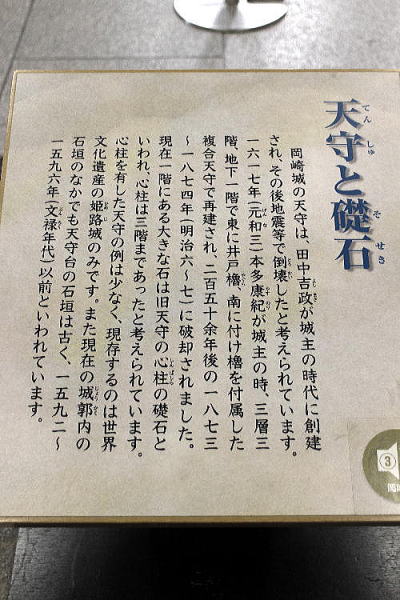 天守と礎石
てんしゅ そせき
岡崎城の天守は、田中吉政が城主の時代に創建
され、その後地震等で倒壊したと考えられています。
一六一七年(元和三)本多康紀が城主の時、三層三
階、地下一階で東に井戸櫓、南に付け櫓を付属した
複合天守で再建され、二百五十余年後の一八七三
～一八七四年(明治六～七)に破却されました。
現在一階にある大きな石は旧天守の心柱の礎石と
いわれ、心柱は三階まであったと考えられています。
心柱を有した天守の例は少なく、現存するのは世界
文化遺産の姫路城のみです。また現在の城郭内の
石垣のなかでも天守台の石垣は古く、一五九二～
一五九六年(文禄年代)以前といわれています。
③